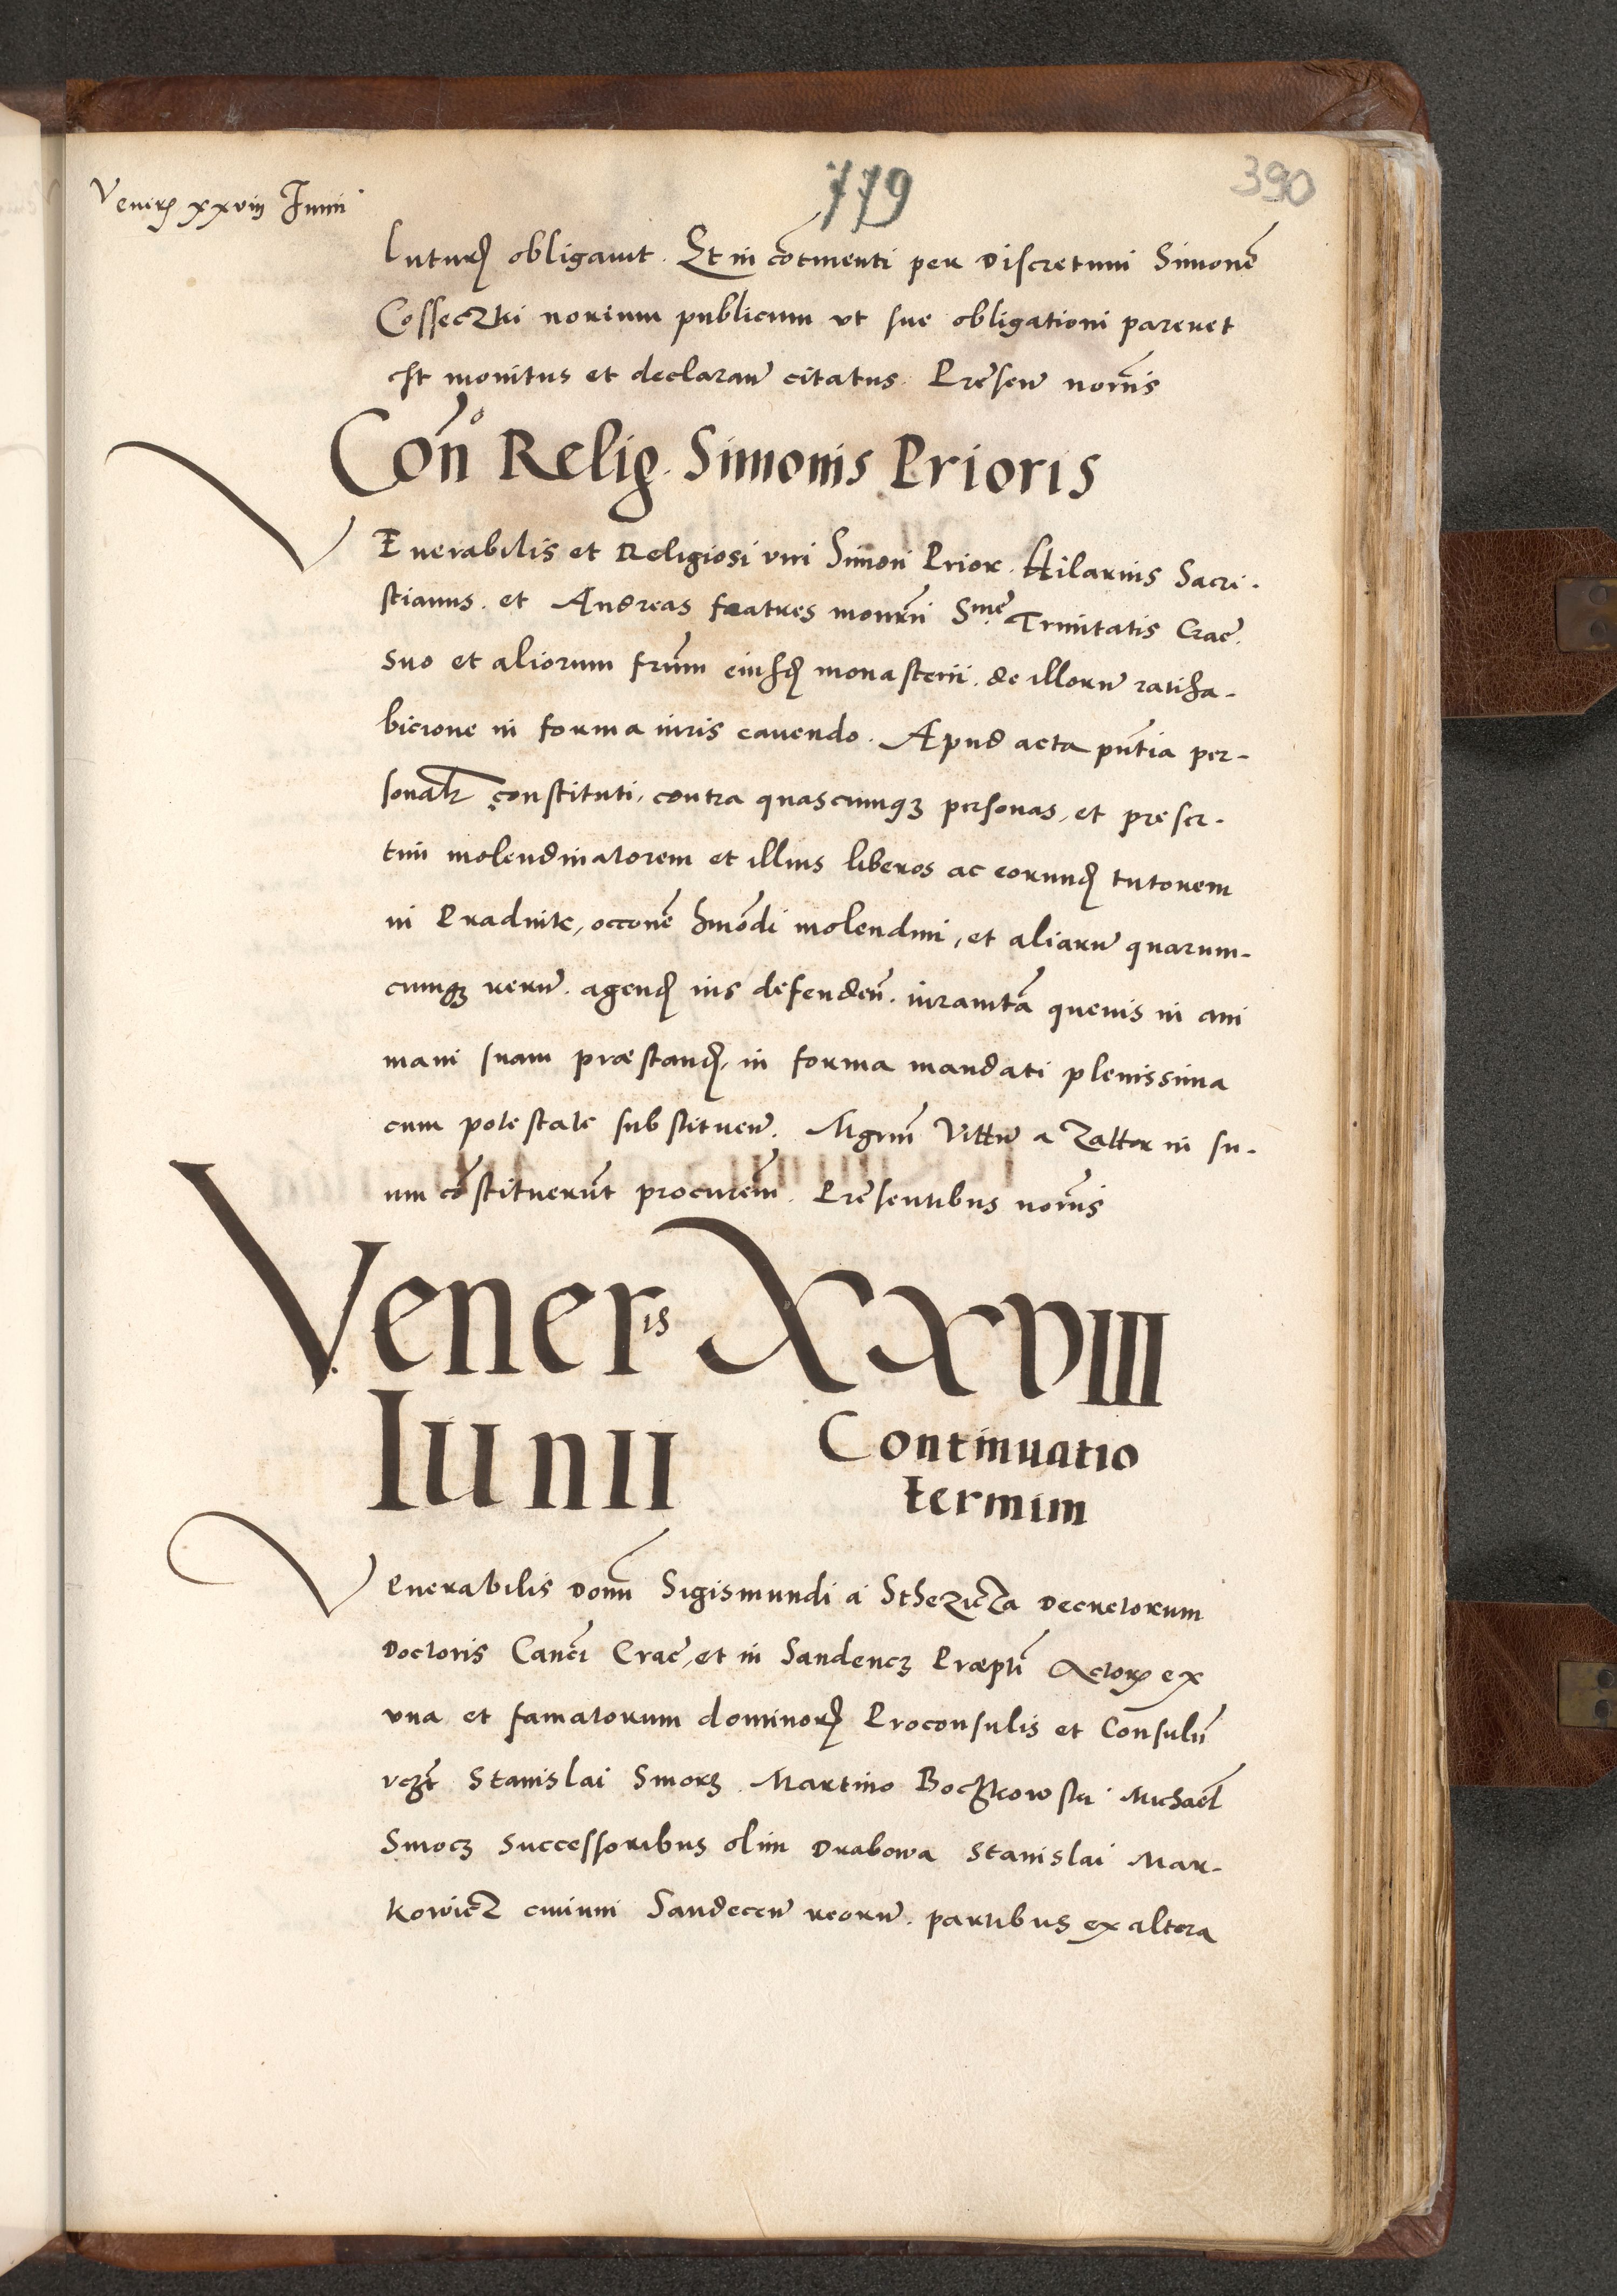 779
390
Veneris xxviii Junii
luturꝭ obligavit. Et in cōtinenti per Discretum Simonē
Cosseczki norium publicum ut sue obligationi pareret
est monitus et declaran̄ citatus. Pręsen̄ nor̄nis
Con̄o Relig. Simonis Prioris
VEnerabilis et Religiosi viri Simon Prior. Hilarius Sacri-
stianus. et Andreas fratres mon̄rii Sme Trinitatis Crac̄.
suo et aliorum frūm eiusdꝭ monasterii. de illorum ratiha-
bicione in forma iuris cavendo. Apud acta pn̄tia per-
sonalr̄ constituti, contra quascumqꝫ personas, et preser-
tim molendinatorem et illius liberos ac eorundꝭ tutorem
in Pradnik, occonē hmōdi molendini, et aliarum quarum-
cumqꝫ rerum. agendꝭ ius defenden̄. iuramtā quevis in ani
mam suam præstandꝭ, in forma mandati plenissima
cum potestate substituen̄. Mgrum̄ Vittum a Zattor in su-
um cōstituerūt procurem̄. Pręsentibus nor̄nis
Veneris XXVIII
Iunii Continuatio
termini
Venerabilis Domī Sigismundi a Sthezicza Decretorum
Doctoris Canci Crac̄, et in Sandencz Præpti Actorꝭ ex
una et famatorum dominorꝭ Proconsulis et Consulū
vczt Stanislai Smorz Martino Boczkowski Michael
Smocz Successoribus olim Drabowa Stanislai Mar-
kowicz civium Sandecen̄ reorum. partibus ex altera